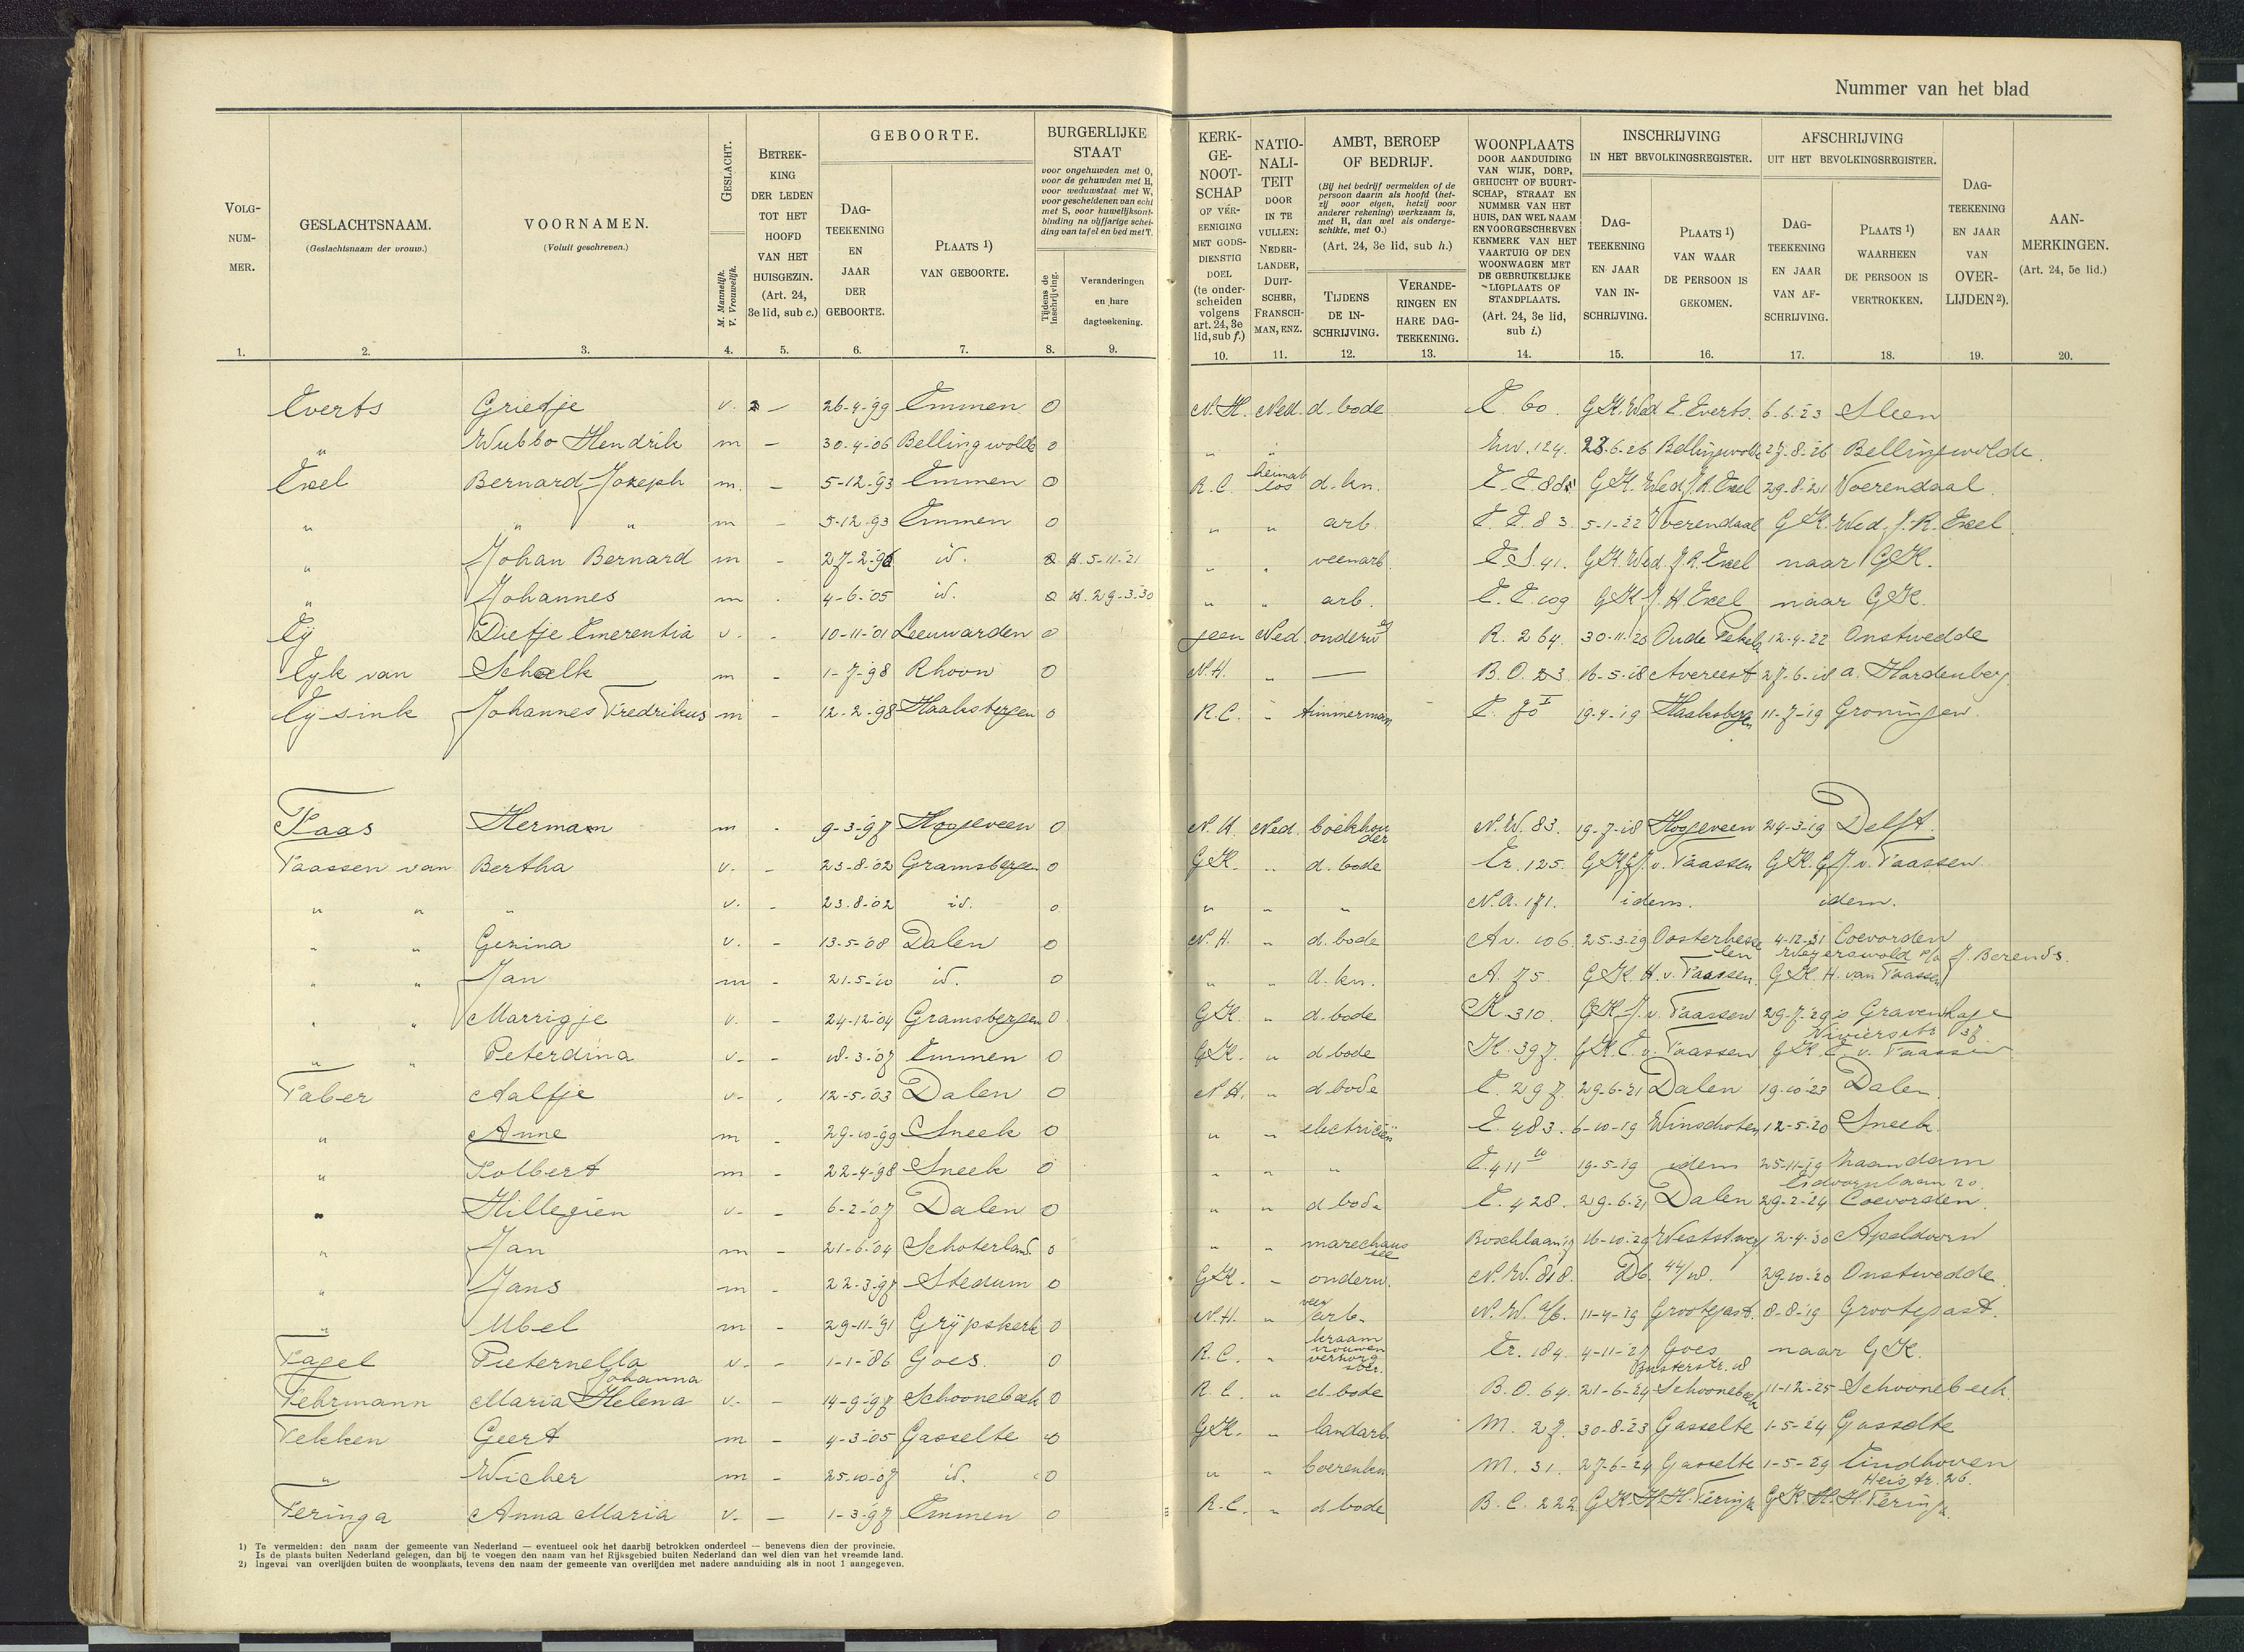 Nummer van het blad
VOLG-NUM-MER. GESLACHTSNAAM. (Geslachtsnaam der vrouw.) VOORNAMEN. (Voluit geschreven.) GESLACHT. M. Mannelijk. V. Vrouwelijk. BETREK-KING DER LEDEN TOT HET HOOFD VAN HET HUISGEZIN. (Art. 24, 3e lid, sub c.)
GEBOORTE. DAG-TEEKENING EN JAAR DER GEBOORTE. PLAATS 1) VAN GEBOORTE.
BURGERLIJKE STAAT voor ongehuwden met O, voor de gehuwden met H, voor weduwstaat met W, voor gescheidenen van echt met S, voor huwelijksontbinding na vijfjarige scheiding van tafel en bed met T. Tijdens de inschrijving. Veranderingen en hare dagteekening.
KERK-GE-NOOT-SCHAP OF VER-EENIGING MET GODS-DIENSTIG DOEL (te onder-scheiden volgens art. 24, 3e lid, sub f.)
NATIO-NALI-TEIT DOOR IN TE VULLEN: NEDER-LANDER, DUIT-SCHER, FRANSCH-MAN, ENZ.
AMBT, BEROEP OF BEDRIJF. (Bij het bedrijf vermelden of de persoon daarin als hoofd (hetzij voor eigen, hetzij voor anderer rekening) werkzaam is, met H, dan wel als ondergeschikte, met O.) (Art. 24, 3e lid, sub h.) TIJDENS DE IN-SCHRIJVING. VERANDE-RINGEN EN HARE DAG-TEEKENING.
WOONPLAATS DOOR AANDUIDING VAN WIJK, DORP, GEHUCHT OF BUURT-SCHAP, STRAAT EN NUMMER VAN HET HUIS, DAN WEL NAAM EN VOORGESCHREVEN KENMERK VAN HET VAARTUIG OF DEN WOONWAGEN MET DE GEBRUIKELIJKE LIGPLAATS OF STANDPLAATS. (Art. 24, 3e lid, sub i.)
INSCHRIJVING IN HET BEVOLKINGSREGISTER. DAG-TEEKENING EN JAAR VAN IN-SCHRIJVING. PLAATS 1) VAN WAAR DE PERSOON IS GEKOMEN.
AFSCHRIJVING UIT HET BEVOLKINGSREGISTER. DAG-TEEKENING EN JAAR VAN AF-SCHRIJVING. PLAATS 1) WAARHEEN DE PERSOON IS VERTROKKEN.
DAG-TEEKENING EN JAAR VAN OVER-LIJDEN 2). AAN-MERKINGEN. (Art. 24, 5e lid.)
1. 2. 3. 4. 5. 6. 7. 8. 9. 10. 11. 12. 13. 14. 15. 16. 17. 18. 19. 20.
Everts Griedje v. - 26-4-'99 Emmen O N.H. Ned. d. bode E. 60. G.K. Wed E. Everts. 6-6-'23 Sleen
" Wubbo Hendrik m - 30-4-'06 Bellingwolde O " " 124. 28-6-'26 Bellingwolde 27-8-'26 Bellingwolde.
Exel Bernard Joseph m. - 5-12-'93 Emmen O R.C. heimatlos d. kn. E.E. 88 G.K. Wed J.R. Exel 29-8-'21 Voerendaal.
" " " m - 5-12-'93 Emmen O " " arb. E.E. 83. 5-1-'22 Voerendaal G.K. Wed. J.R. Exel
" Johan Bernard m - 27-2-'96 id. O H. 5-11-'21 " " veenarb. E.S. 41. G.K. Wed. J.R. Exel naar G.K.
" Johannes m - 4-6-'05 id. O H. 29-3-'30 " " arb. E.E. 109 G.K. J.H. Exel naar G.K.
Eÿ Dietje Emerentia v. - 10-11-'01 Leeuwarden O geen Ned. onderw R. 264. 30-11-'20 Oude Pekela 12-4-'22 Onstwedde
Eyk van Schalk m - 1-7-'98 Rhoon O N.H. " — B.O. 23. 16-5-'18 Avereest 27-6-'18 a. Hardenberg.
Eysink Johannes Fredrikus m - 12-2-'98 Haaksbergen O R.C. " timmerman E. 70 I 19-4-'19 Haaksbergen 11-7-'19 Groningen.
Faas Herman m - 9-3-'97 Hoogeveen O N.H. Ned. boekhouder N.W. 83. 19-7-'18 Hoogeveen 24-3-'19 Delft.
Faassen van Bertha v. - 23-8-'02 Gramsbergen O G.K. " d. bode Er. 125. G.K. G.J. v. Faassen G.K. G.J. v. Faassen
" " " v. - 23-8-'02 id. O " " " N.A. 171. idem. idem.
" " Gezina v. - 13-5-'08 Dalen O N.H. " d. bode Av. 106. 25-3-'29 Oosterhesselen 4-12-'31 Coevorden Weijerswold p/a J. Berends.
" " Jan m - 21-5-'10 id. O " " d. kn. A. 75. G.K. H. v. Faassen. G.K. H. van Faassen
" " Marrigje v. - 24-12-'04 Gramsbergen O G.K. " d. bode K. 310. G.K. J. v. Faassen 29-7-'29 's Gravenhage
" " Peterdina v. - 18-3-'07 Emmen O G.K. " d. bode K. 397. G.K. E. v. Faassen G.K. E. v. Faassen
Faber Aaltje v. - 12-5-'03 Dalen O N.H. " d. bode E. 297. 29-6-'21 Dalen 19-10-'23 Dalen.
" Anne m - 29-10-'99 Sneek O " " electriciën E. 483. 6-10-'19 Winschoten 12-5-'20 Sneek.
" Folbert m - 22-4-'98 Sneek O " " " E. 411 10 19-5-'19 idem 25-11-'19 Zaandam
" Hillegien v. - 6-2-'07 Dalen O " " d. bode E. 428. 29-6-'21 Dalen 29-2-'24 Coevorden.
" Jan m - 21-6-'04 Schoterland O " " marechaussee Boschlaan 19 16-10-'29 2-4-'30 Apeldoorn
" Jans m - 22-3-'97 Stedum O G.K. " onderw. N.W. 818. Db. 44/18. 29-10-'20 Onstwedde.
" Ubel m - 29-11-'91 Grÿpskerk O N.H. " veenarb. N.W. a/b. 11-4-'19 Grootegast. 8-8-'19 Grootegast.
Fagel Pieternella v. - 1-1-'86 Goes. O R.C. " kraamvrouwenverzorgster. Er. 184. 4-11-'27 Goes naar G.K.
Fehrmann Maria Johanna Helena v. - 14-9-'97 Schoonebeek O R.C. " d. bode B.O. 64. 21-6-'24 Schoonebeek 11-12-'25 Schoonebeek.
Fekken Geert m - 4-3-'05 Gasselte O G.K. " landarb. M. 27. 30-8-'23 Gasselte 1-5-'24 Gasselte
" Wicher m - 25-10-'07 id. O " " boerenkn. M. 31. 27-6-'24 Gasselte 1-5-'29 Eindhoven
Feringa Anna Maria v. — 1-3-'97 Emmen O R.C. " d. bode B.C. 222 G.K. H.H. Feringa G.K. H.H. Feringa.
1) Te vermelden: den naam der gemeente van Nederland — eventueel ook het daarbij betrokken onderdeel — benevens dien der provincie.
Is de plaats buiten Nederland gelegen, dan bij te voegen den naam van het Rijksgebied buiten Nederland dan wel dien van het vreemde land.
2) Ingeval van overlijden buiten de woonplaats, tevens den naam der gemeente van overlijden met nadere aanduiding als in noot 1 aangegeven.